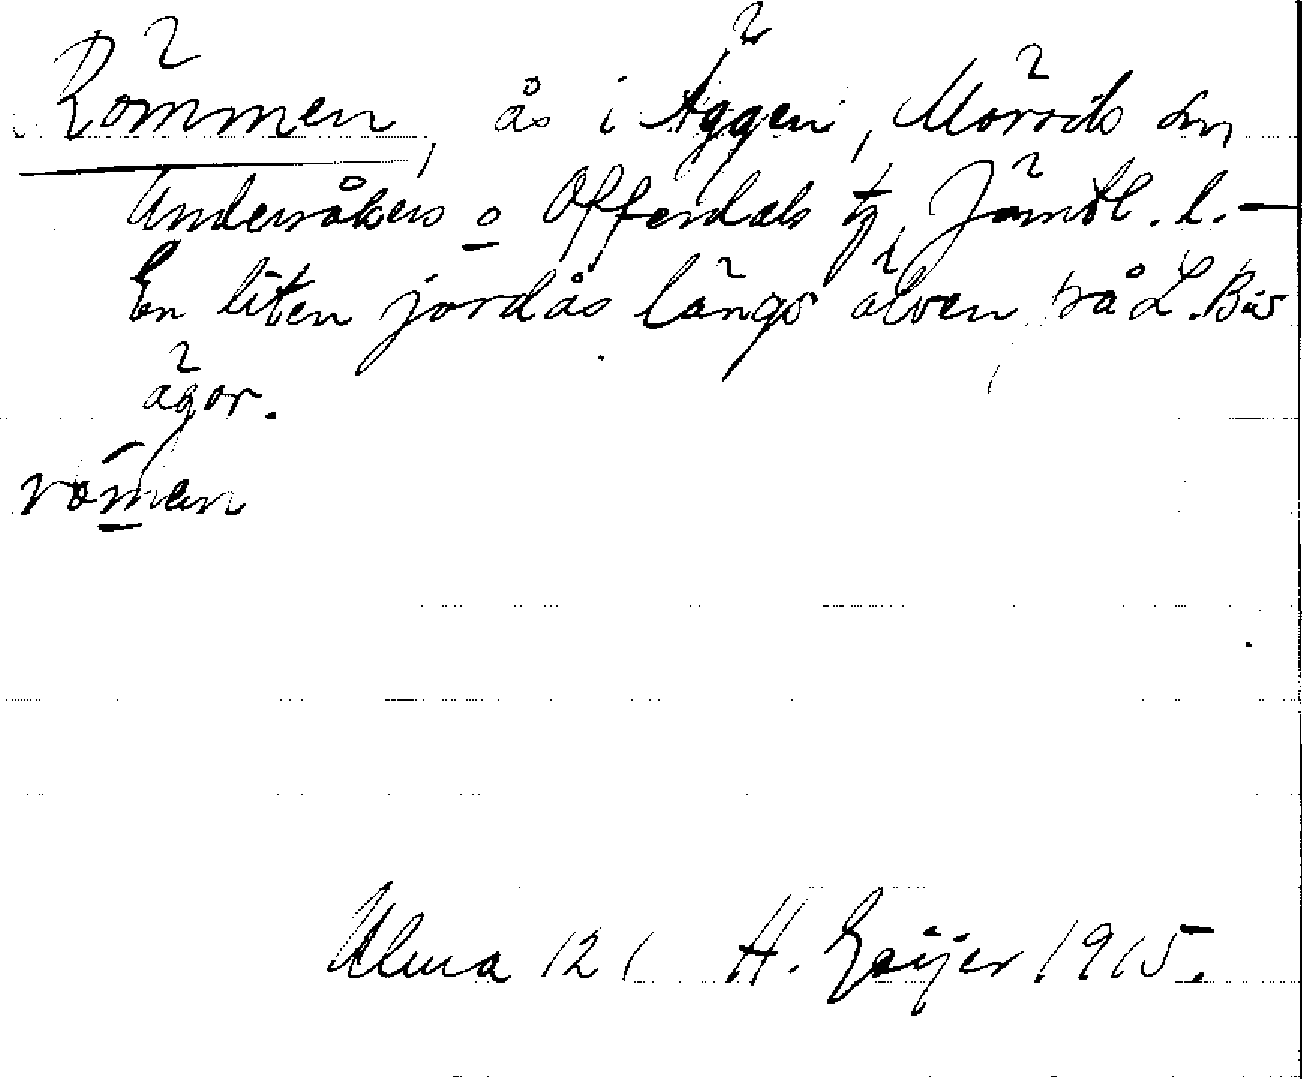 Römmen, ås i Äggen, Mörsils sn
Undersåkers o Offerdals tg, Jämtl. l. —
En liten jordås längs älven på L. Bis
ägor.
römen
Ulma 121 H. Geijer 1915.